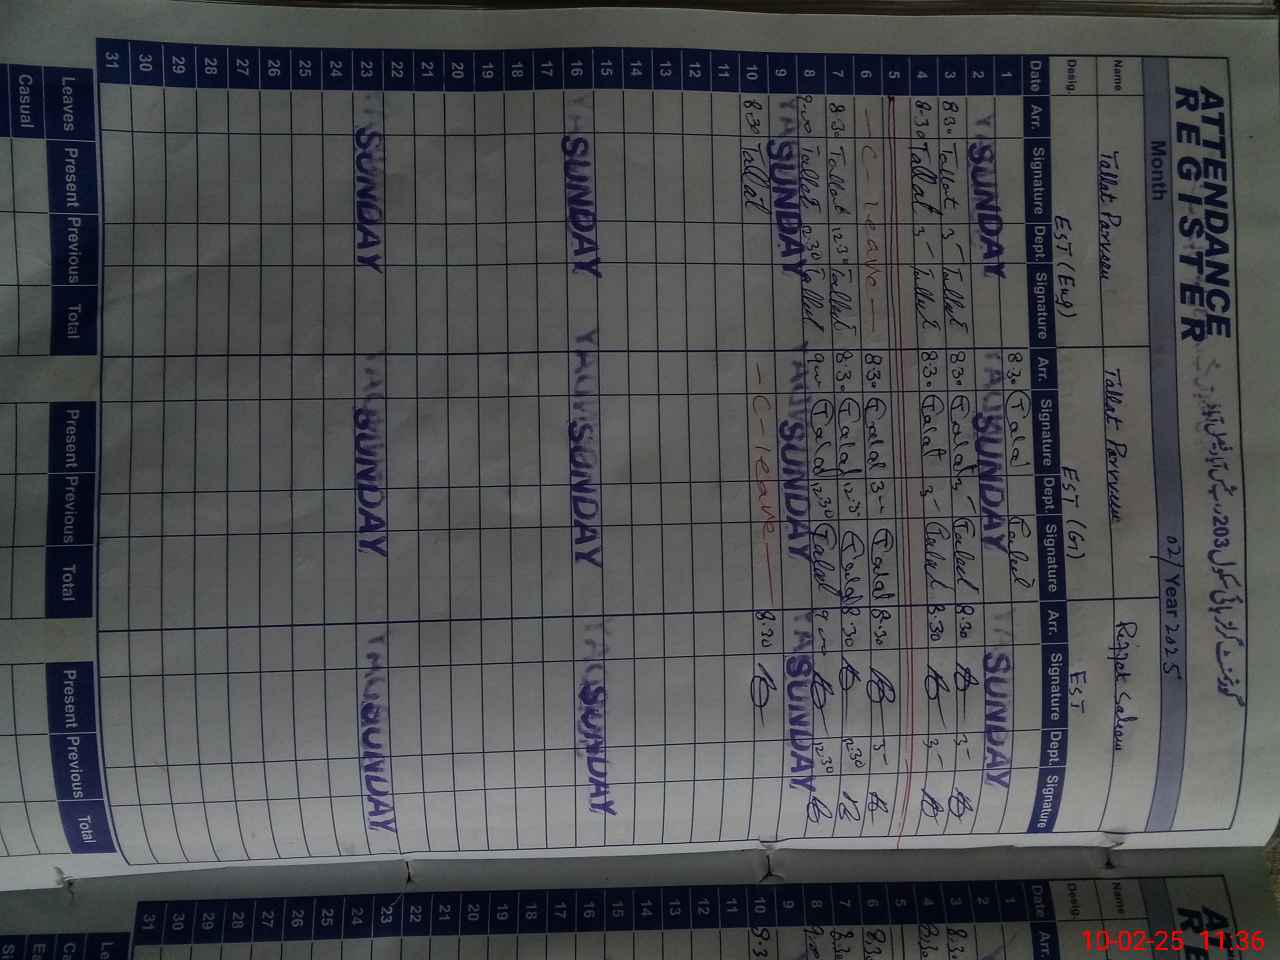 گورنمنٹ گرلز ہائی سکول 203
ATTENDANCE
REGISTER
Month 02/ Year 2025
Name Tallat Parveen Tallat Parveen
Desig. EST (Eng) EST (G) EST
Date Arr. Signature Dept. Signature Arr. Signature Dept. Signature Arr. Signature Dept. Signature
1 8:30
2 SUNDAY SUNDAY SUNDAY
3 8:30 Tallat 3- Tallat 8:30 Talat 3- Talat 8:30 3-
4 8:30 Tallat 3- Tallat 8:30 Talat 3- Talat 8:30 3-
5
6 - C - leave - 8:30 Talat 3- Talat 8:30 3-
7 8:30 Tallat 12:30 Tallat 8:30 Talat 12:30 Talat 8:30 12:30
8 9:00 Tallat 12:30 Tallat 9:00 Talat 12:30 Talat 9:00 12:30
9 SUNDAY SUNDAY SUNDAY
10 8:30 Tallat - C - leave - 8:30
11
12
13
14
15
16 SUNDAY SUNDAY SUNDAY
17
18
19
20
21
22
23 SUNDAY SUNDAY SUNDAY
24
25
26
27
28
29
30
31
Leaves Present Previous Total Present Previous Total Present Previous Total
Casual
Name
Desig.
Date Arr.
1
2
3 8:30
4 8:30
5
6 8:30
7 8:30
8 9:00
9
10
11
12
13
14
15
16
17
18
19
20
21
22
23
24
25
26
27
28
29
30
31
10-02-25 11:36